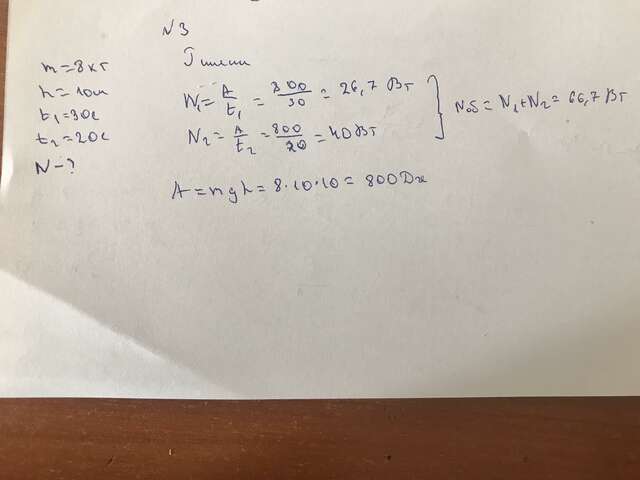 N3
m=8кг
h=10м
t₁=30с
t₂=20с
N-?
N₁= A/t₁ = 800/30 = 26,7 Вт
N₂= A/t₂ = 800/20 = 40Вт
Nоб = N₁+N₂= 66,7 Вт
A=mgh=8·10·10=800Дж